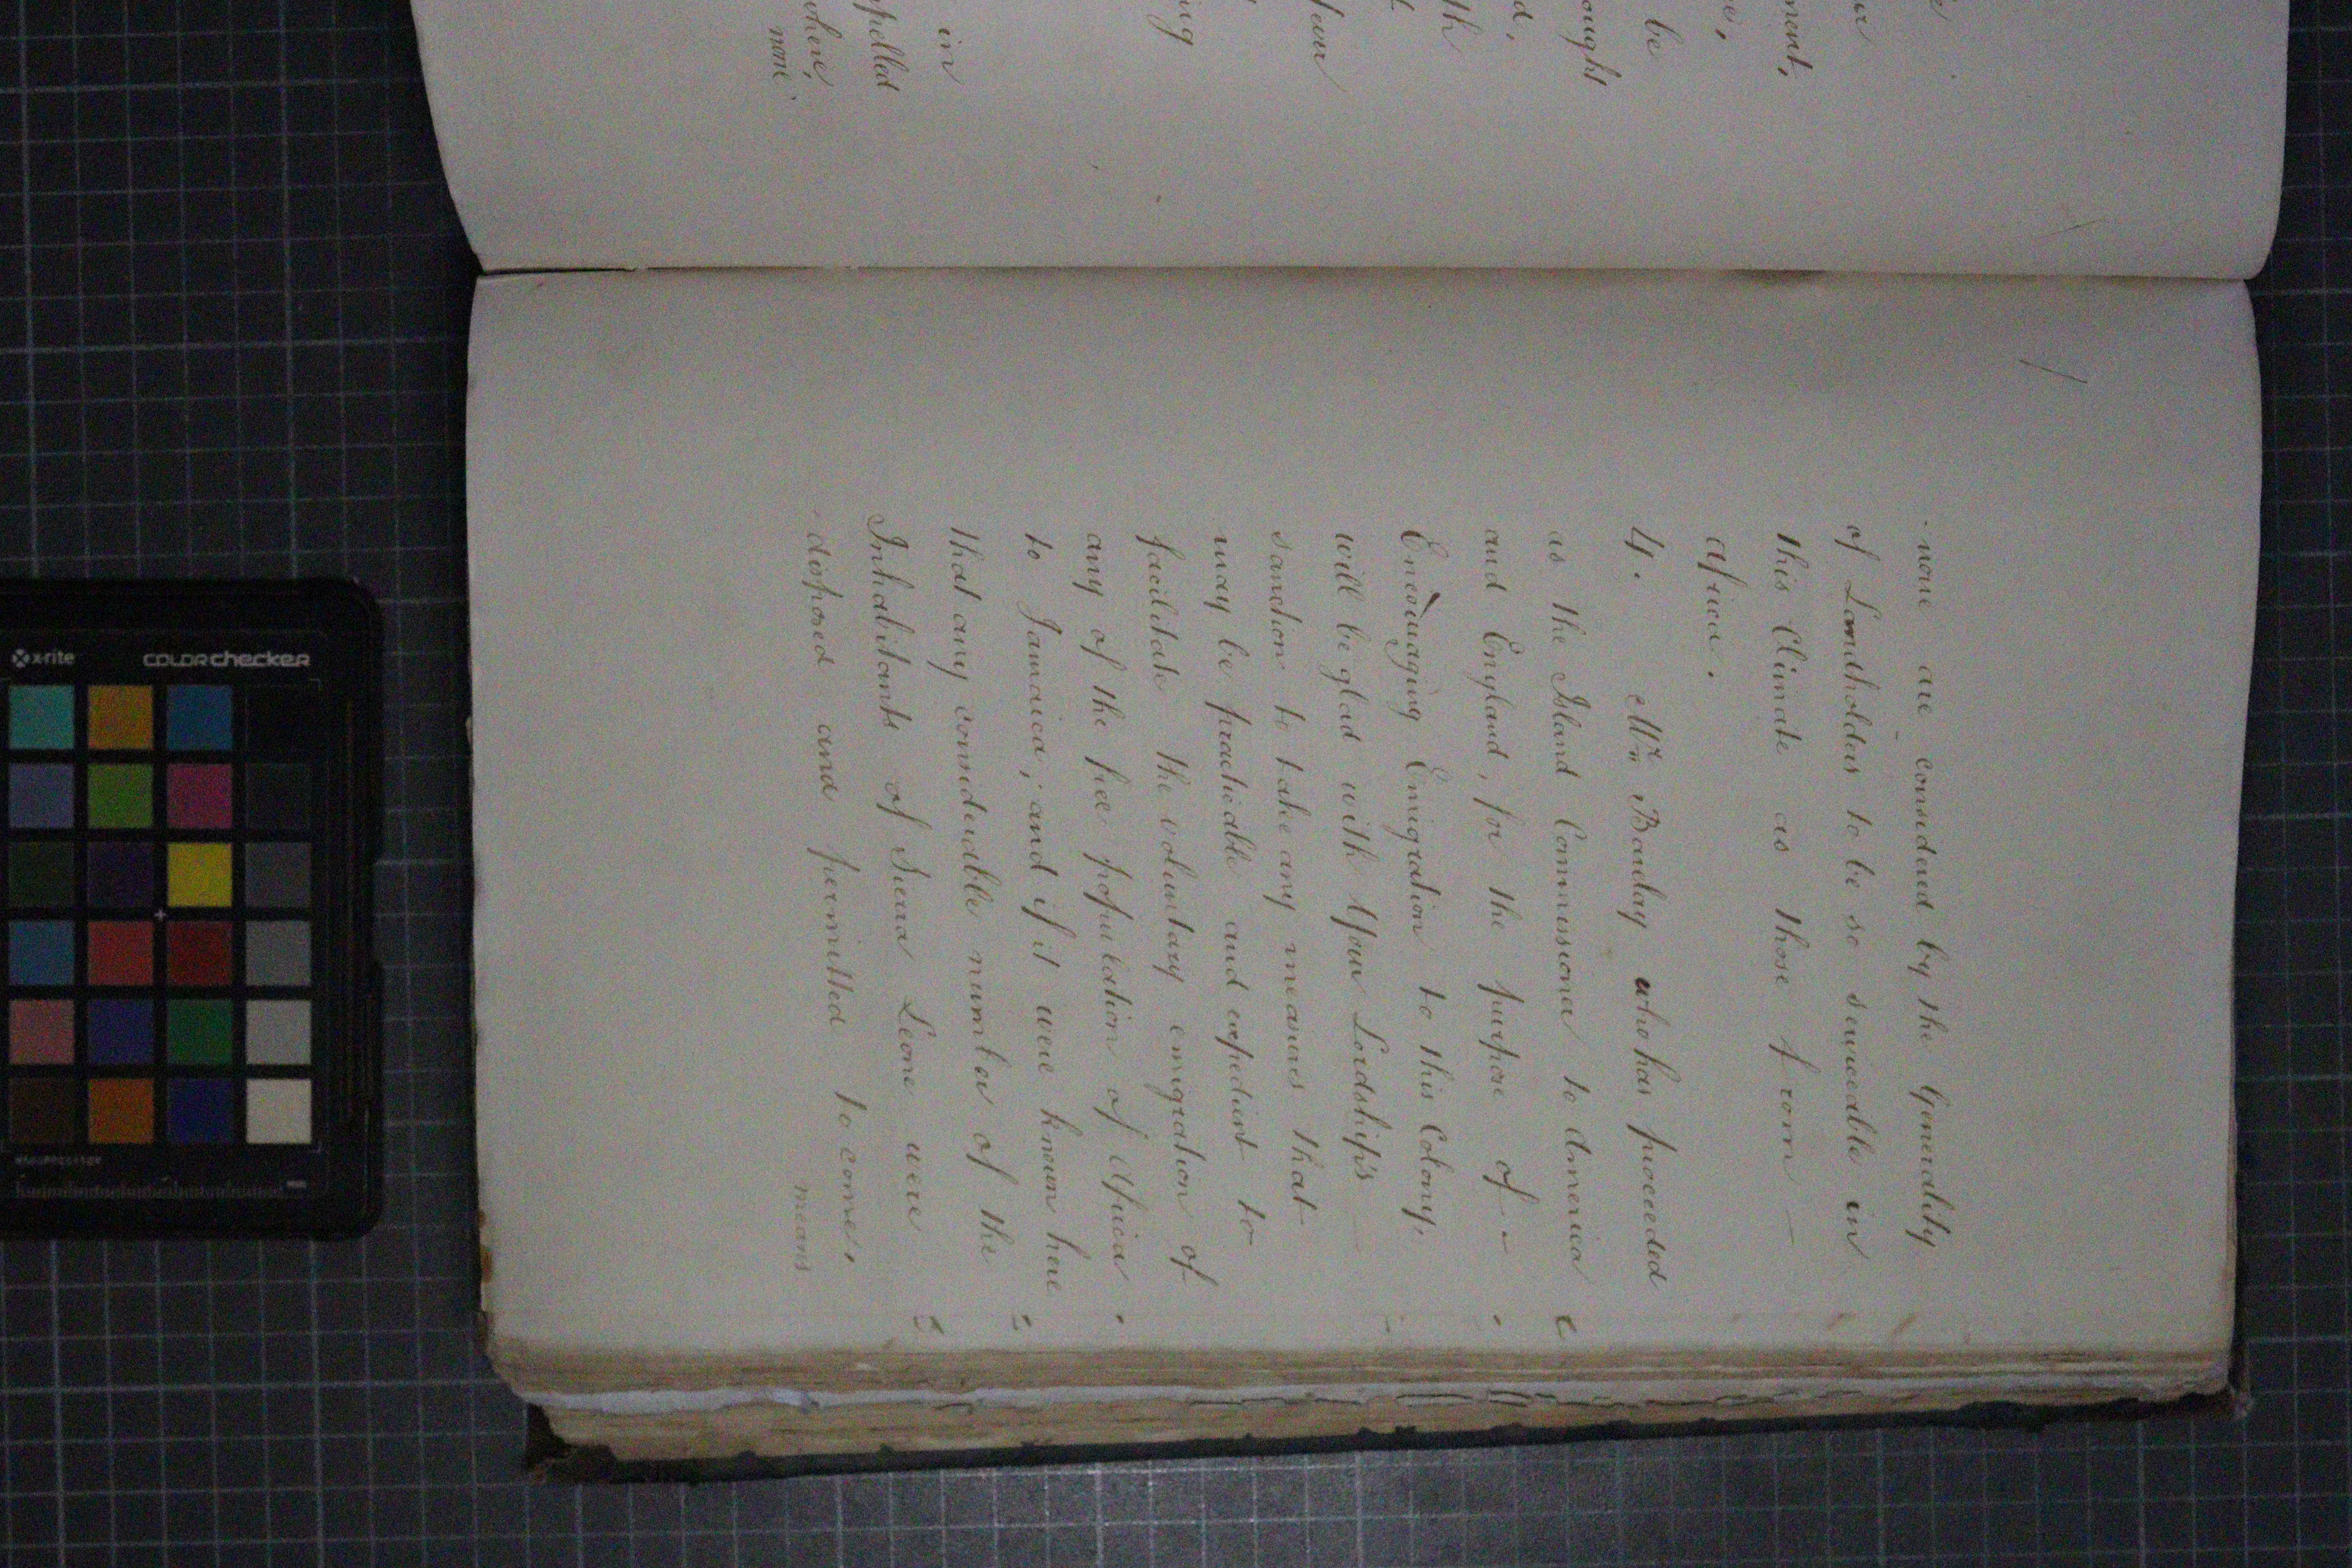 in
pelled
where,
none
none are considered by the Generality
of Landholders to be so serviceable in
this Climate as those from —
africa.
4. Mr. Barclay who has proceeded
as the Island Commissioner to America
and England, for the purpose of -
Encouraging Emigration to this Colony,
will be glad with Your Lordship's —
sanction to take any measures that
may be practicable and expedient to
facilitate the voluntary emigration of
any of the free population of Africa
to Jamaica; and if it were known here
that any considerable number of the
Inhabitants of Sierra Leone were
disposed and permitted to come,
means
x-rite
colorchecker